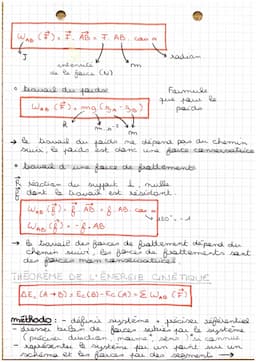 W_AB (F⃗) = F⃗ . AB⃗ = F. AB. cos α
J
intensité de la force (N)
m
radian
• travail du poids
Formule que pour le poids
W_AB (P⃗) = mg (z_A - z_B)
m
→ le travail du poids ne dépend pas du chemin
suivi, le poids est donc une force conservatrice
• travail d'une force de frottements
réaction du support ⊥, nulle
dont le travail est résistant.
W_AB (f⃗) = f⃗ . AB⃗ = f. AB. cos α
180° = -1
W_AB (f⃗) = - f. AB
→ le travail des forces de frottement dépend du
chemin suivi, les forces de frottements sont
des forces non conservatives
THÉORÈME DE L'ÉNERGIE CINÉTIQUE
ΔEc (A→B) = Ec(B) - Ec(A) = Σ W_AB (F⃗)
méthodo : - définir système + préciser référentiel
- dresser bilan de forces subies par le système
(préciser direction, sens si connus)
- représenter le système par un point sur un
schéma et les forces par des segments →